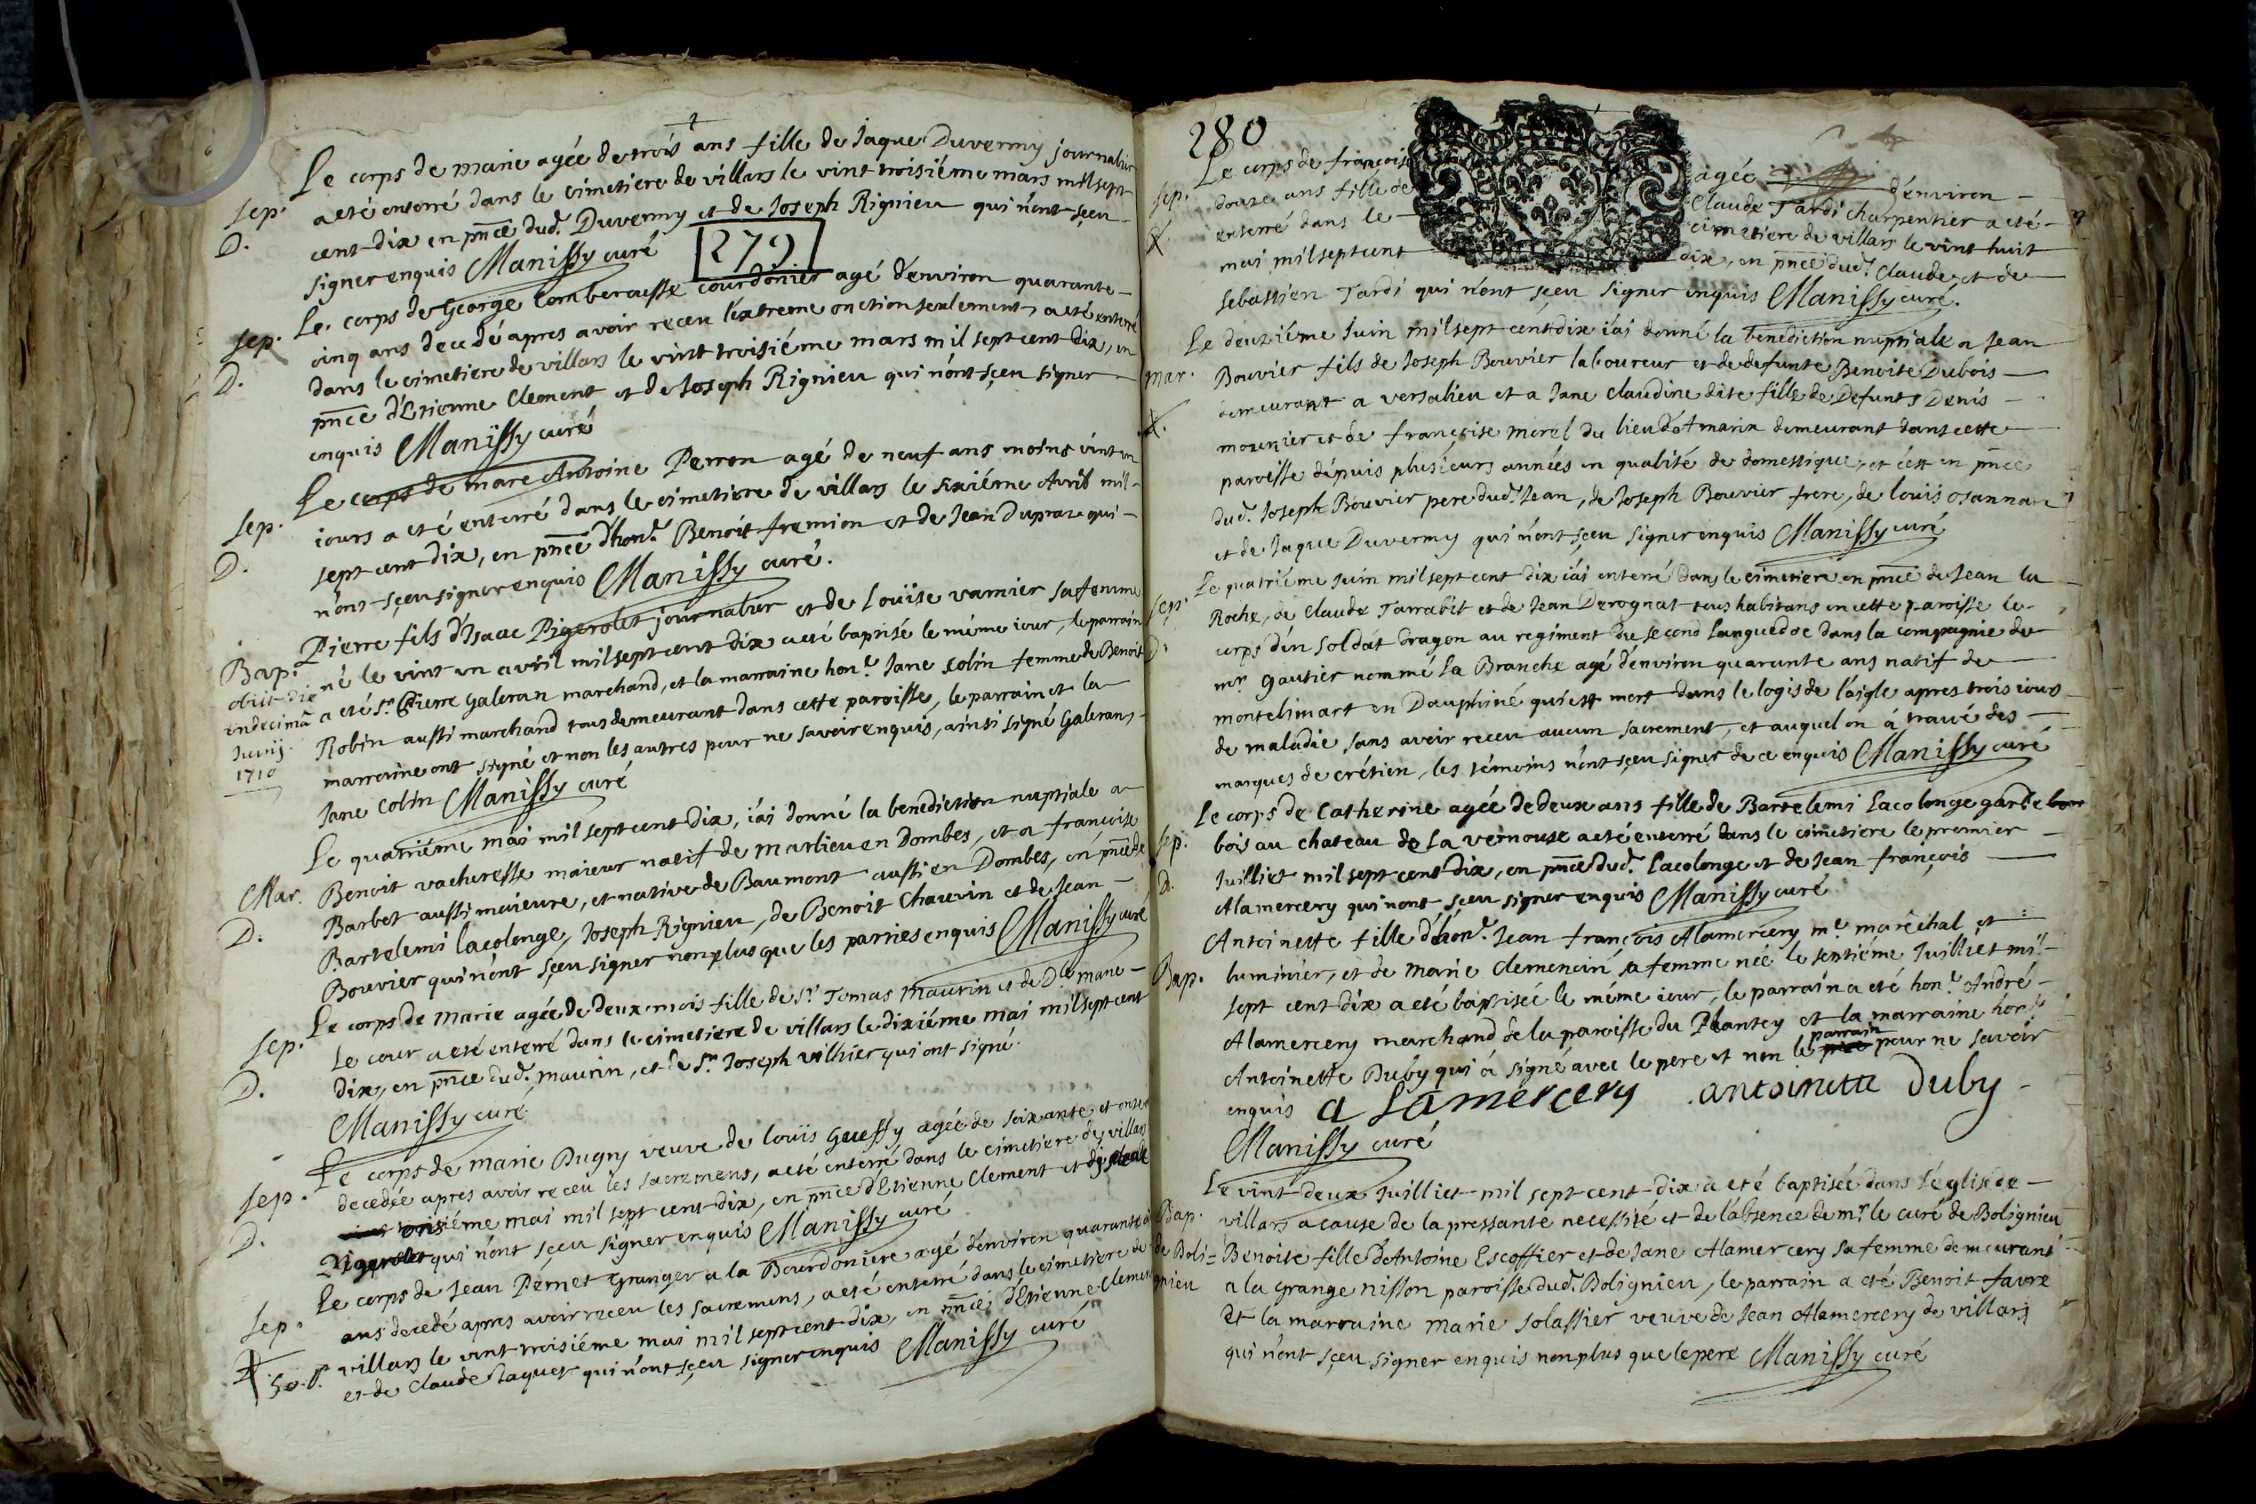 Le corps de marie agée de trois ans fille de Jaque Duvermy journalier
Sep. a eté enterré dans le cimetiere de villars le vint troisiéme mars mil sept
D. cent dix en pñce dud. Duvermy et de Joseph Rignieu qui n'ont sçeu
signer enquis Manissy curé
279
Le corps de George Comberousse courdonier agé d'environ quarante
Sep. cinq ans decedé apres avoir receu l'extreme onction seulement, a eté enterré
D. dans le cimetiere de villars le vint troisiéme mars mil sept cent dix, en
pñce d'Etienne Clement et de Joseph Rignieu qui n'ont sçeu signer
enquis Manissy curé
Le corps de marc Antoine Perron agé de neuf ans moins vint un
Sep. iours a eté enterré dans le cimetiere de villars le sixiéme Avril mil
D. sept cent dix, en pñce d'hon. Benoit fremion et de Jean Dupraz qui
n'ont sçeu signer enquis Manissy curé.
Pierre fils d'Isaac Pigerolet journalier et de Louïse varnier sa femme
Bap. né le vint un avril mil sept cent dix a eté baptisé le méme iour, le parrain
obiit die a eté Sr. Pierre Galeran marchand, et la marraine hon.e Jane Colin femme de Benoit
undecimâ Robin aussi marchand tous demeurant dans cette paroisse, le parrain et la
Junij marraine ont signé et non les autres pour ne savoir enquis, ainsi signé Galeran,
1710 Jane Colin Manissy curé
Le quatriéme mai mil sept cent dix, i'ai donné la benediction nuptiale a
Mar. Benoit vacheresse maieur natif de marlieu en Dombes, et a françoise
D. Barbet aussi maieure, et native de Baumont aussi en Dombes, en pñce de
Bartelemi lacolonge, Joseph Rignieu, de Benoit Chauvin et de Jean
Bouvier qui n'ont sçeu signer non plus que les parties enquis Manissy curé
Le corps de Marie agée de deux mois fille de Sr. Tomas maurin et de D.le marie
Sep. Le cour a eté enterré dans le cimetiere de villars le dixiéme mai mil sept cent
D. dix, en pñce dud. maurin, et de Sr. Joseph vilhier qui ont signé.
Manissy curé
Le corps de marie Dugny veuve de louïs Gueffy agée de soixante et onze
Sep. decedée apres avoir receu les sacremens, a eté enterré dans le cimetiere de villars
D. troisiéme mai mil sept cent dix, en pñce d'Etienne Clement et
Pigerolet qui n'ont sçeu signer enquis Manissy curé
Le corps de Jean Pernet Granger a la Bourdoniere agé d'environ quarante
Sep. ans decedé apres avoir receu les sacremens, a eté enterré dans le cimetiere de
D villars le vint troisiéme mai mil sept cent dix, en pñce d'Etienne Clement
50. s. et de Claude Jaquet qui n'ont sçeu signer enquis Manissy curé
280
Le corps de françoise agée d'environ
Sep. douze ans fille de Claude Tardi charpentier a eté
enterré dans le cimetiere de villars le vint huit
mai mil sept cent dix, en pñce dud. Claude et de
Sebastien Tardi qui n'ont sçeu signer enquis Manissy curé.
Le deuxiéme Juin mil sept cent dix i'ai donné la benediction nuptiale a Jean
Mar. Bouvier fils de Joseph Bouvier laboureur et de defunte Benoite Dubois
demeurant a versalieu et a Jane Claudine dite fille de Defunts Denis
mounier et de françoise morel du lieu d'Atmarix demeurant dans cette
paroisse depuis plusieurs années en qualité de domestique, et c'est en pñce
dud. Joseph Bouvier pere dud. Jean, de Joseph Bouvier frere, de louis Osannan
et de Jaque Duvermy qui n'ont sçeu signer enquis Manissy curé
Le quatriéme Juin mil sept cent dix i'ai enterré dans le cimetiere en pñce de Jean la
Sep. Roche, de Claude Tarrabit et de Jean Derognat tous habitans en cette paroisse le
D. corps d'un soldat dragon au regiment du second Languedoc dans la compagnie de
mr. Gautier nommé La Branche agé d'environ quarante ans natif de
montelimart en Dauphiné qui est mort dans le logis de l'aigle apres trois iours
de maladie sans avoir receu aucun sacrement, et auquel on à trouvé des
marques de crétien, les témoins n'ont sçeu signer de ce enquis Manissy curé
Le corps de Catherine agée de deux ans fille de Bartelemi Lacolonge garde
Sep. bois au chateau de La vernouse a eté enterré dans le cimetiere le premier
D. Juilliet mil sept cent dix, en pñce dud. Lacolonge et de Jean françois
Alamercery qui n'ont sçeu signer enquis Manissy curé
Antoinette fille d'hon. Jean françois Alamercery m.e maréchal et
Bap. luminier, et de Marie Clemencin sa femme née le septiéme Juilliet mil
sept cent dix a eté baptisée le méme iour, le parrain a eté hon. André
Alamercery marchand de la paroisse du Plantey et la marraine hon.e
Antoinette Duby qui à signé avec le pere et non le parrain pour ne savoir
enquis a Lamercery antoinette Duby
Manissy curé
Le vint deux Juilliet mil sept cent dix à eté baptisée dans l'église de
Bap. villars a cause de la pressante necessité et de l'absence de mr. le curé de Bolignieu
de Boli= Benoite fille d'Antoine Escoffier et de Jane Alamercery sa femme demeurant
gnieu a la Grange Nisson paroisse dud. Bolignieu, le parrain a eté Benoit favre
et la marraine Marie Solassier veuve de Jean Alamercery de villars
qui n'ont sçeu signer enquis non plus que le pere Manissy curé